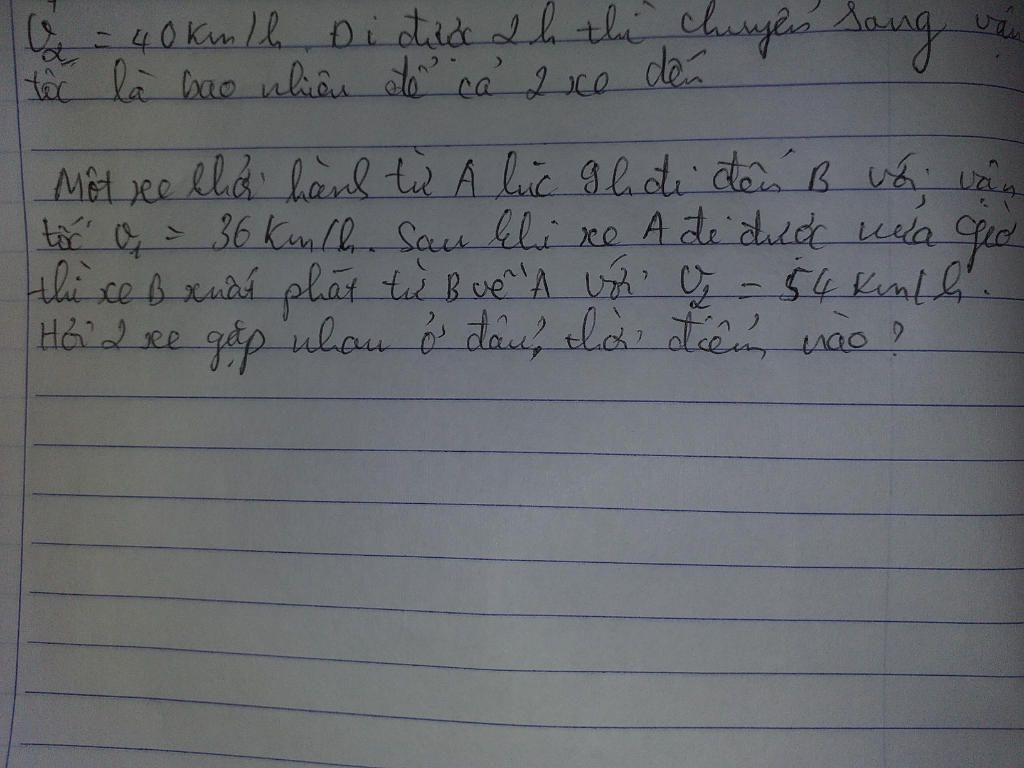 V₂ = 40 Km/h. Đi được 2h thì chuyển sang vận
tốc là bao nhiêu để cả 2 xe đến
Một xe khởi hành từ A lúc 9h đi đến B với vận
tốc v₁ = 36 Km/h. Sau khi xe A đi được nửa giờ
thì xe B xuất phát từ B về A với V₂ = 54 Km/h.
Hỏi 2 xe gặp nhau ở đâu, thời điểm nào?